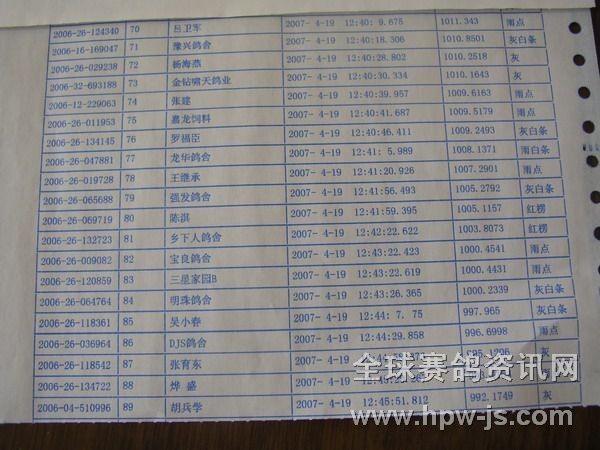 2006-26-124340 70 吕卫军 2007- 4-19 12:40: 9.675 1011.343 雨点
2006-16-169047 71 豫兴鸽舍 2007- 4-19 12:40:18.306 1010.8501 灰白条
2006-26-029238 72 杨海燕 2007- 4-19 12:40:28.802 1010.2518 灰
2006-32-693188 73 金钻啸天鸽业 2007- 4-19 12:40:30.334 1010.1643 灰
2006-12-229063 74 张建 2007- 4-19 12:40:39.957 1009.6163 雨点
2006-26-011953 75 嘉龙饲料 2007- 4-19 12:40:41.687 1009.5179 雨点
2006-26-134145 76 罗福臣 2007- 4-19 12:40:46.411 1009.2493 灰白条
2006-26-047881 77 龙华鸽舍 2007- 4-19 12:41: 5.989 1008.1371 雨点
2006-26-019728 78 王继承 2007- 4-19 12:41:20.926 1007.2901 雨点
2006-26-065688 79 强发鸽舍 2007- 4-19 12:41:56.493 1005.2792 灰白条
2006-26-069719 80 陈淇 2007- 4-19 12:41:59.395 1005.1157 红楞
2006-26-132723 81 乡下人鸽舍 2007- 4-19 12:42:22.622 1003.8073 红楞
2006-26-009082 82 宝良鸽舍 2007- 4-19 12:43:22.423 1000.4541 雨点
2006-26-120859 83 三星家园B 2007- 4-19 12:43:22.619 1000.4431 雨点
2006-26-064764 84 明珠鸽舍 2007- 4-19 12:43:26.365 1000.2339 灰白条
2006-26-118361 85 吴小春 2007- 4-19 12:44: 7. 75 997.965 灰白条
2006-26-036964 86 DJS鸽舍 2007- 4-19 12:44:29.858 996.6998 雨点
2006-26-118542 87 张育东 2007- 4-19 灰
2006-26-134722 88 烨 盛 2007- 4-19
2006-04-510996 89 胡兵学 2007- 4-19 12:45:51.812 992.1749 灰
全球赛鸽资讯网
www.hpw-js.com